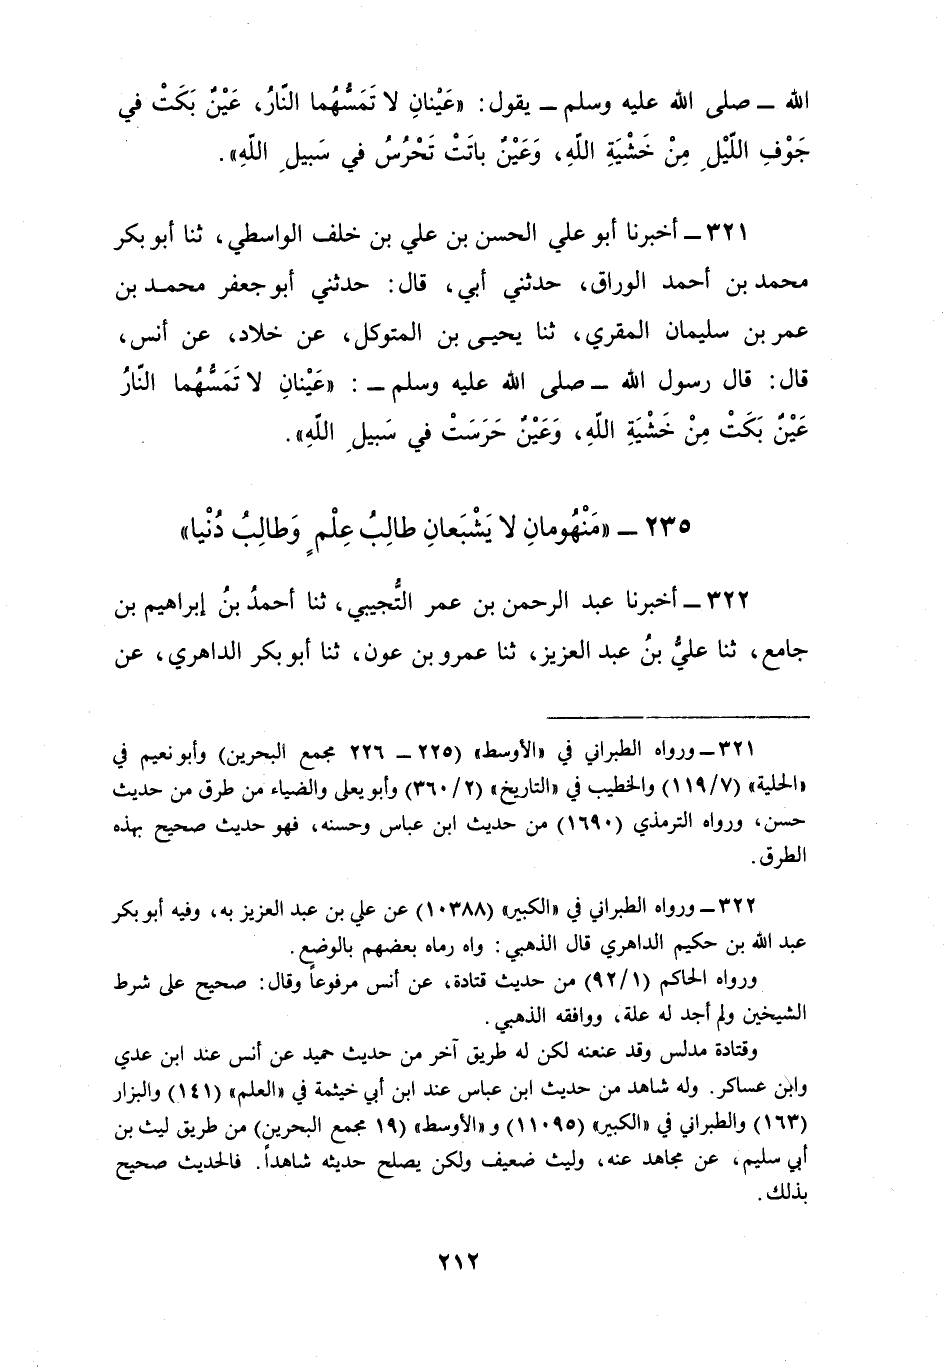 الله ــ صلى الله عليه وسلم ــ يقول: «عَيْنانِ لا تَمَسُّهُما النّارُ، عَيْنٌ بَكَتْ في
جَوْفِ اللّيْلِ مِنْ خَشْيَةِ اللّهِ، وَعَيْنٌ باتَتْ تَحْرُسُ في سَبيلِ اللّهِ».
٣٢١ ــ أخبرنا أبو علي الحسن بن علي بن خلف الواسطي، ثنا أبو بكر
محمد بن أحمد الوراق، حدثني أبي، قال: حدثني أبو جعفر محمد بن
عمر بن سليمان المقري، ثنا يحيى بن المتوكل، عن خلاد، عن أنس،
قال: قال رسول الله ــ صلى الله عليه وسلم ــ: «عَيْنانِ لا تَمَسُّهُما النّارُ
عَيْنٌ بَكَتْ مِنْ خَشْيَةِ اللّهِ، وَعَيْنٌ حَرَسَتْ في سَبيلِ اللّهِ».
٢٣٥ ــ «مَنْهُومانِ لا يَشْبَعانِ طالِبُ عِلْمٍ وَطالِبُ دُنْيا»
٣٢٢ ــ أخبرنا عبد الرحمن بن عمر التُّجيبي، ثنا أحمدُ بنُ إبراهيم بن
جامع، ثنا عليُّ بنُ عبد العزيز، ثنا عمرو بن عون، ثنا أبو بكر الداهري، عن
٣٢١ ــ ورواه الطبراني في «الأوسط» (٢٢٥ ــ ٢٢٦ مجمع البحرين) وأبو نعيم في
«الحلية» (١١٩/٧) والخطيب في «التاريخ» (٣٦٠/٢) وأبو يعلى والضياء من طرق من حديث
حسن، ورواه الترمذي (١٦٩٠) من حديث ابن عباس وحسنه، فهو حديث صحيح بهذه
الطرق.
٣٢٢ ــ ورواه الطبراني في «الكبير» (١٠٣٨٨) عن علي بن عبد العزيز به، وفيه أبو بكر
عبد الله بن حكيم الداهري قال الذهبي: واه رماه بعضهم بالوضع.
ورواه الحاكم (٩٢/١) من حديث قتادة، عن أنس مرفوعاً وقال: صحيح على شرط
الشيخين ولم أجد له علة، ووافقه الذهبي.
وقتادة مدلس وقد عنعنه لكن له طريق آخر من حديث حميد عن أنس عند ابن عدي
وابن عساكر. وله شاهد من حديث ابن عباس عند ابن أبي خيثمة في «العلم» (١٤١) والبزار
(١٦٣) والطبراني في «الكبير» (١١٠٩٥) و «الأوسط» (١٩ مجمع البحرين) من طريق ليث بن
أبي سليم، عن مجاهد عنه، وليث ضعيف ولكن يصلح حديثه شاهداً. فالحديث صحيح
بذلك.
٢١٢